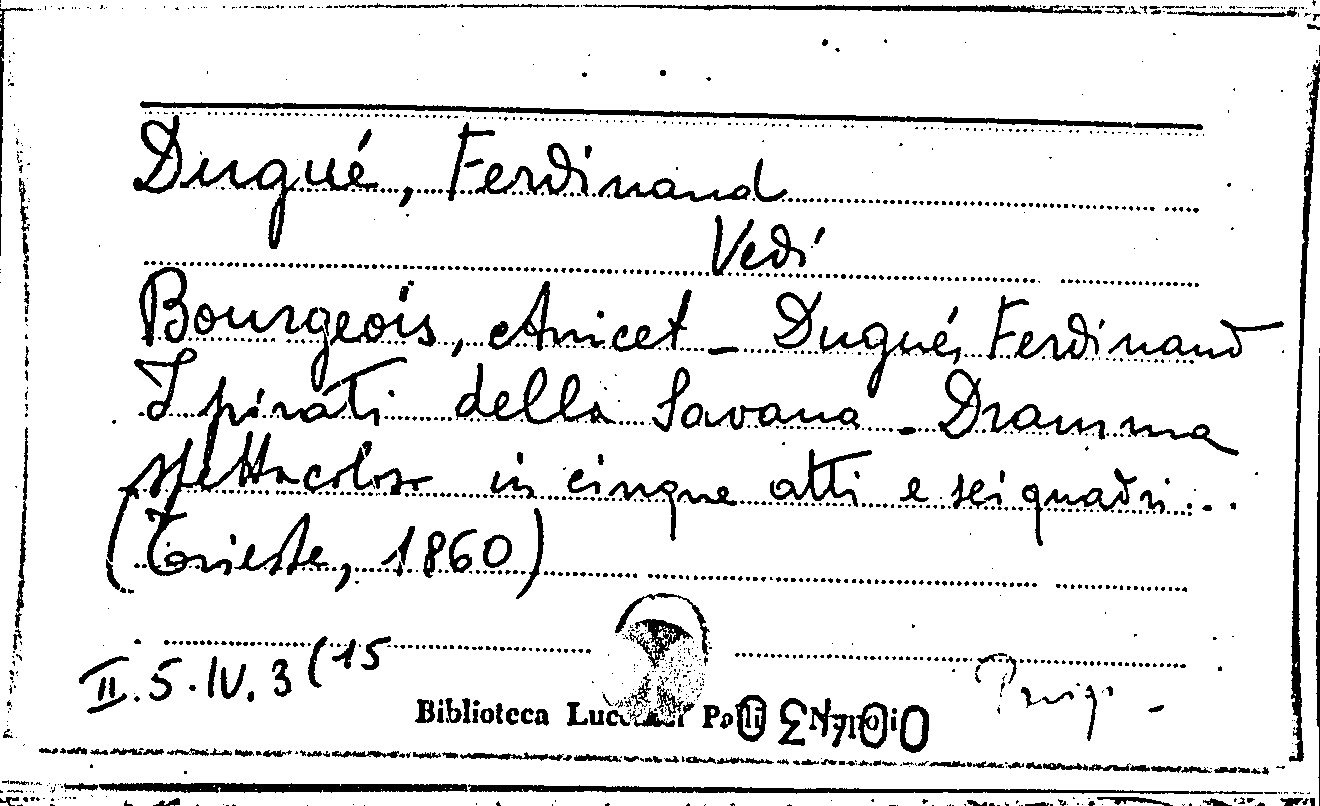 Dugué, Ferdinand
Vedi
Bourgeois, Anicet - Dugué, Ferdinand
I pirati della Savana - Dramma
spettacoloso in cinque atti e sei quadri...
(Trieste, 1860)
II.5.IV.3(15
Biblioteca Palli